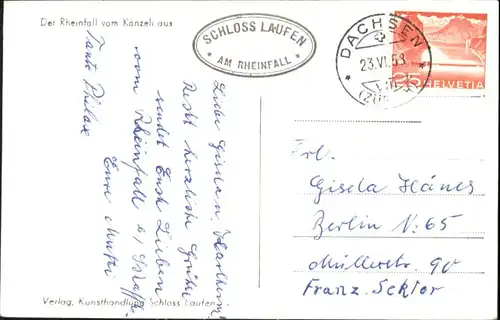 Der Rheinfall vom Känzeli aus
SCHLOSS LAUFEN
* AM RHEINFALL *
DACHSEN
23.VI.53
HELVETIA
Liebe Gisela u. Karlheinz
Recht herzliche Grüße
sendet Euch Lieben
vom Rheinfall
Eure Mutti
Tante
Frl.
Gisela Hänes
Berlin N. 65
Müllerstr. 90
Franz. Sektor
Verlag, Kunsthandlung Schloss Laufen